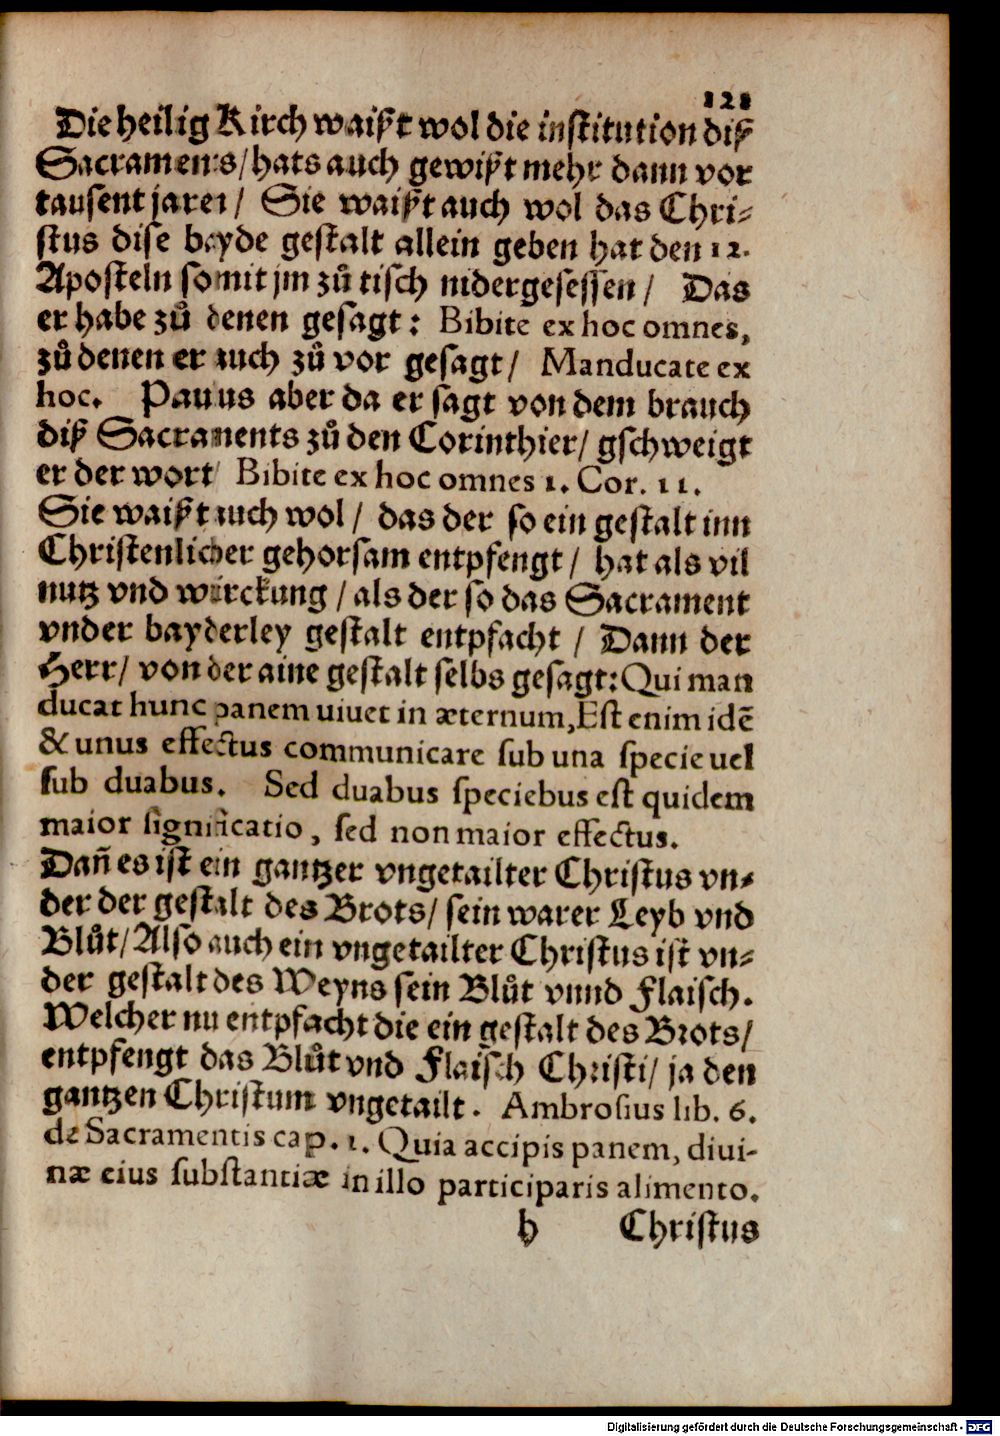 121
Die heilig Kirch waißt wol die institution diß
Sacraments/hats auch gewißt mehr dann vor
tausent jaren/ Sie waißt auch wol das Chri⸗
stus dise bayde gestalt allein geben hat den 12.
Aposteln so mit jm zů tisch nidergesessen/ Das
er habe zů denen gesagt: Bibite ex hoc omnes,
zů denen er auch zů vor gesagt/ Manducate ex
hoc. Paulus aber da er sagt von dem brauch
diß Sacraments zů den Corinthier/ gschweigt
er der wort/ Bibite ex hoc omnes 1. Cor. 11.
Sie waißt auch wol/ das der so ein gestalt inn
Christenlicher gehorsam entpfengt/ hat als vil
nutz vnd würckung/als der so das Sacrament
vnder bayderley gestalt entpfacht/ Dann der
Herr/ von der aine gestalt selbs gesagt: Qui man
ducat hunc panem uiuet in æternum, Est enim idē
& unus effectus communicare sub una specie uel
sub duabus. Sed duabus speciebus est quidem
maior significatio, sed non maior effectus.
Dañ es ist ein gantzer vngetailter Christus vn⸗
der der gestalt des Brots/ sein warer Leyb vnd
Blůt/Also auch ein vngetailter Christus ist vn⸗
der gestalt des Weyns sein Blůt vnnd Flaisch.
Welcher nu entpfacht die ein gestalt des Brots/
entpfengt das Blůt vnd Flaisch Christi/ ja den
gantzen Christum vngetailt. Ambrosius lib. 6.
de Sacramentis cap. 1. Quia accipis panem, diui-
næ eius substantiæ in illo participaris alimento.
h Christus
Digitalisierung gefördert durch die Deutsche Forschungsgemeinschaft - DFG